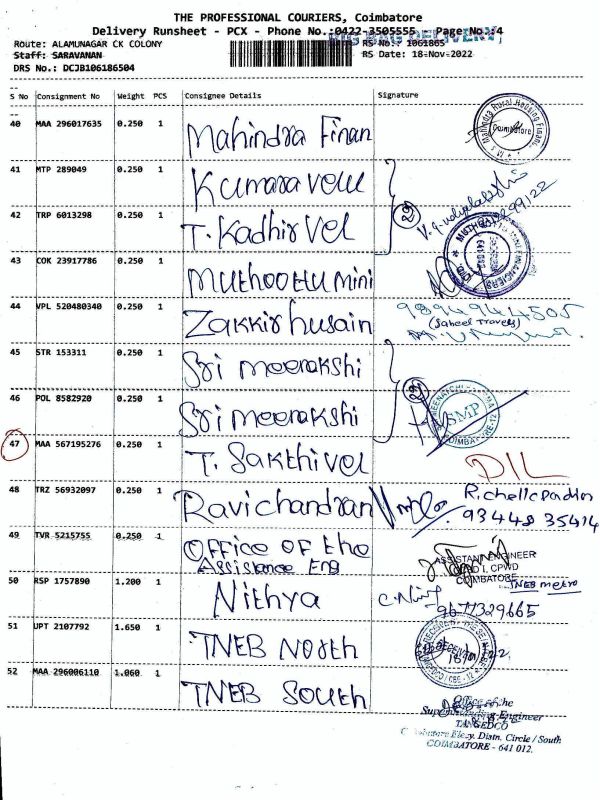 THE PROFESSIONAL COURIERS, Coimbatore
Delivery Runsheet - PCX - Phone No.:0422-3505555 - Page No.:4
Route: ALAMUNAGAR CK COLONY
RS No.: 1061865
Staff: SARAVANAN
RS Date: 18-Nov-2022
DRS No.: DCJB106186504
S No Consignment No Weight PCS Consignee Details Signature
40 MAA 296017635 0.250 1 Mahindra Finan
41 MTP 289049 0.250 1 Kumaravelu
42 TRP 6013298 0.250 1 T. Kadhirvel
43 COK 23917786 0.250 1 Muthoottu mini
44 VPL 520480340 0.250 1 Zakkir husain 9894944505
(Saheel Travels)
45 STR 153311 0.250 1 Sri meenakshi
46 POL 8582920 0.250 1 Sri meenakshi SMP
47 MAA 567195276 0.250 1 T. Sakthivel DIL
48 TRZ 56932097 0.250 1 Ravichandran
93448 35414
49 TVR 5215755 0.250 1 Office of the
Assistance Eng
ASSISTANT ENGINEER
CPWD
COIMBATORE
TNEB metro
50 RSP 1757890 1.200 1 Nithya 9677329665
51 UPT 2107792 1.650 1 TNEB North
52 MAA 296006110 1.060 1 TNEB South
Office of the
Superintending Engineer
TANGEDCO
Coimbatore Elecy. Distn. Circle / South
COIMBATORE - 641 012.